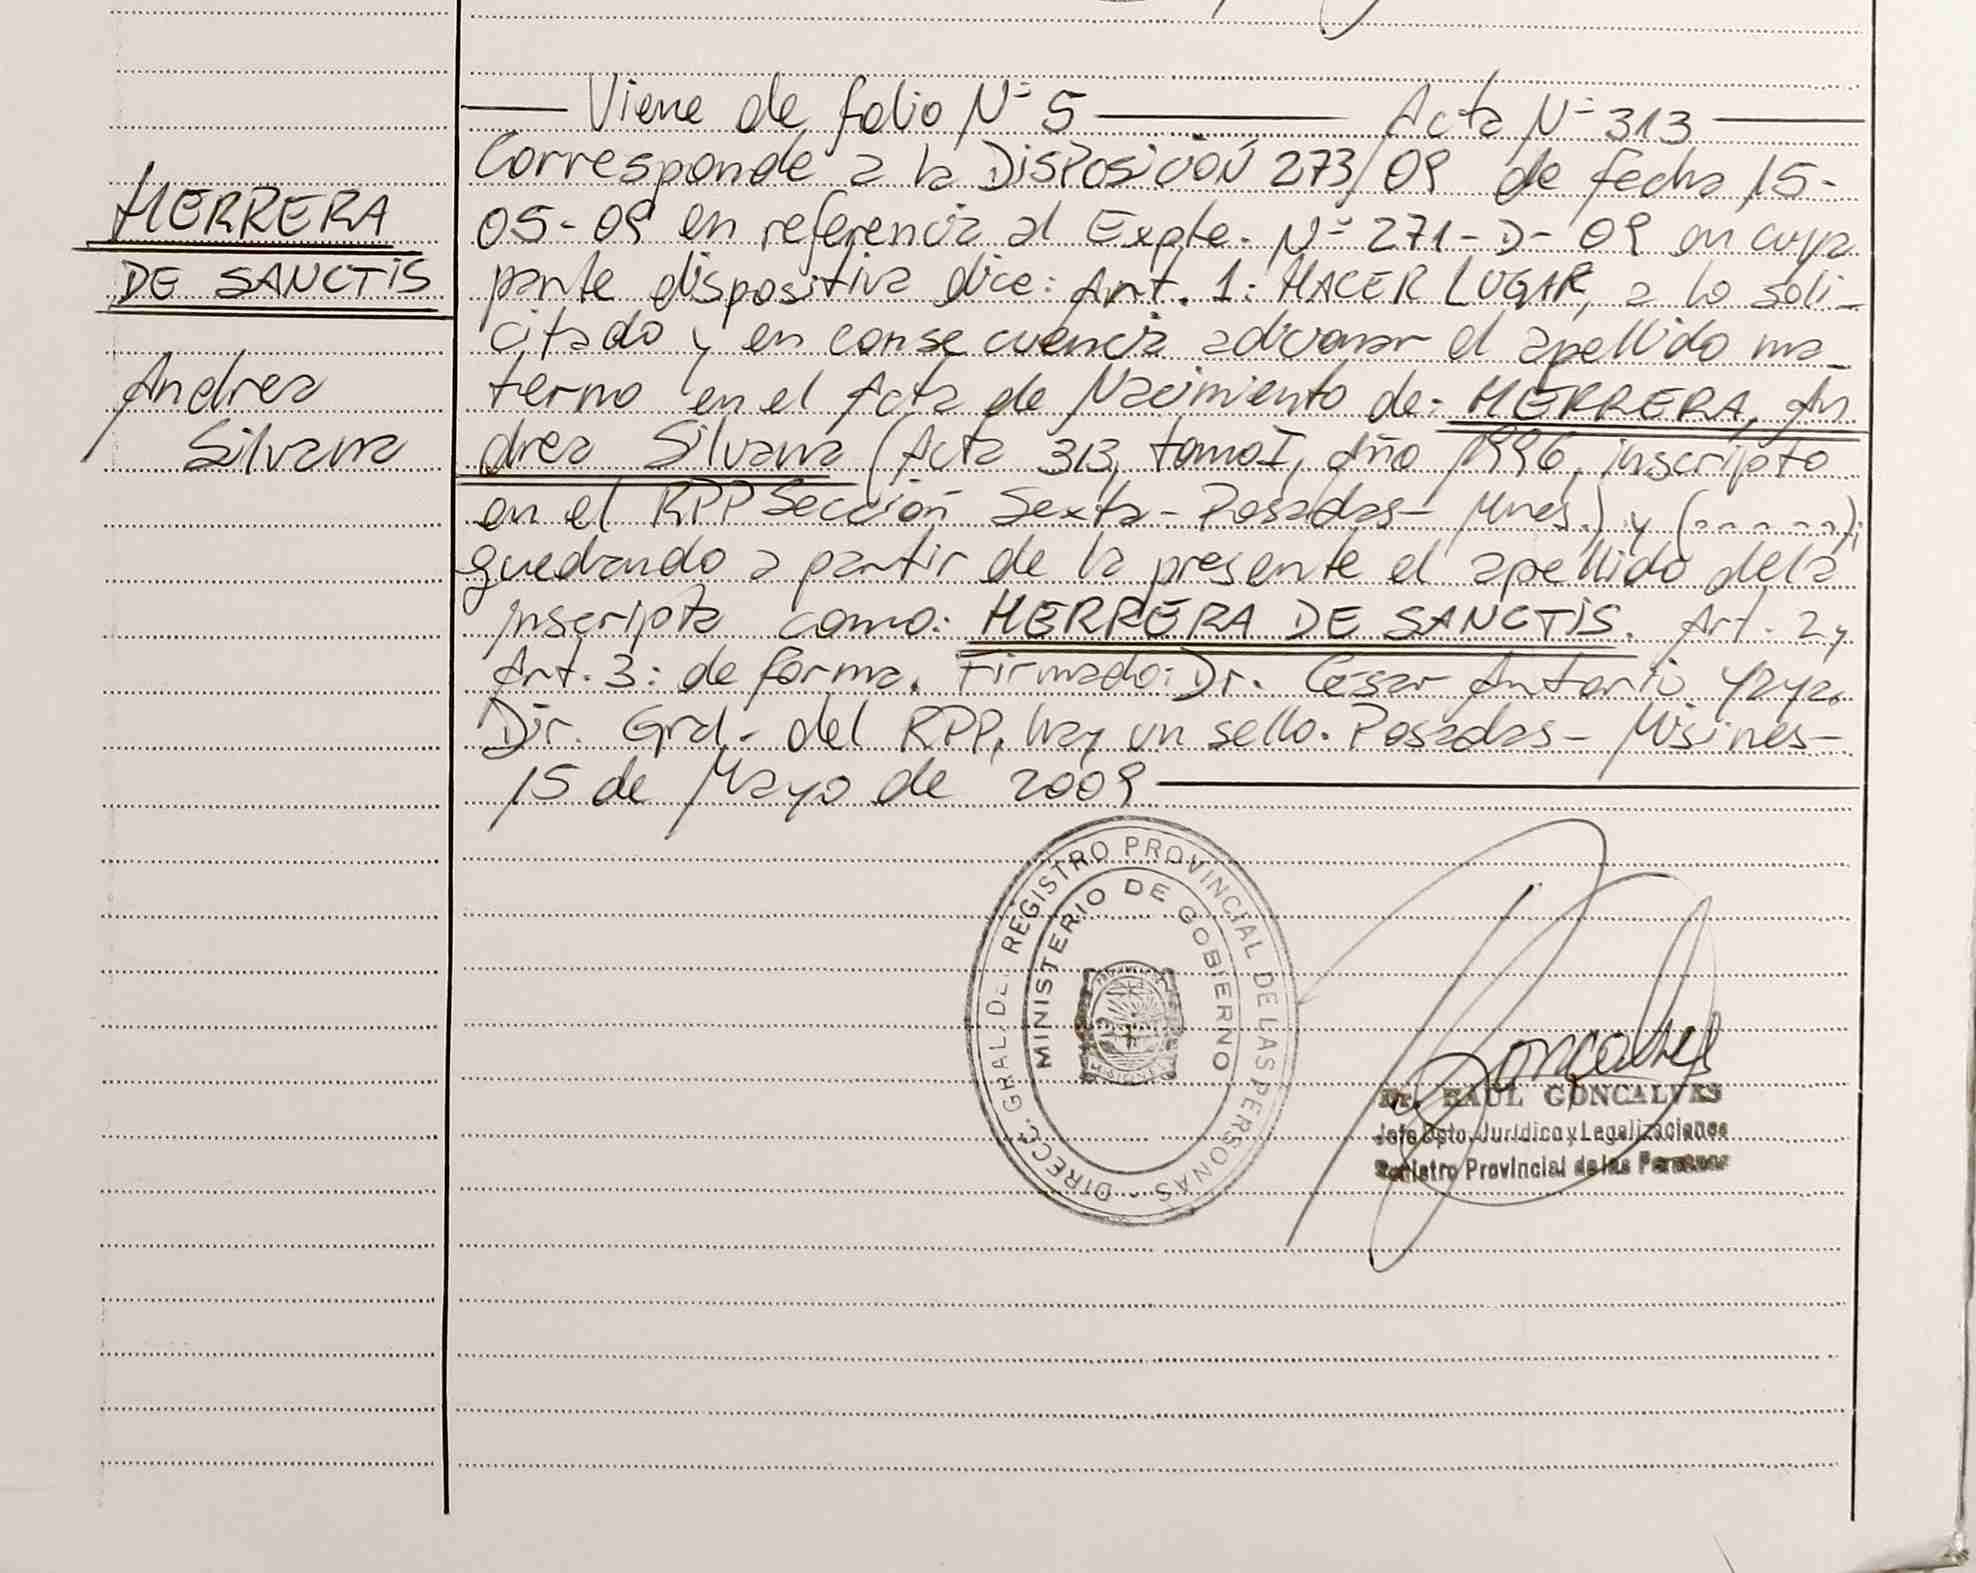 Viene de folio Nº 5 Acta Nº 313
Corresponde a la DISPOSICIÓN 273/09 de fecha 15-
05-09 en referencia al Expte. Nº 271-D-09 en cuya
parte dispositiva dice: Art. 1: HACER LUGAR, a lo soli-
citado y en consecuencia adicionar el apellido ma-
terno en el Acta de Nacimiento de: HERRERA, An
drea Silvana (Acta 313, tomo I, año 1996, inscripto
en el RPP Sección Sexta - Posadas - Mnes.) y (-----);
quedando a partir de la presente el apellido de la
inscripta como: HERRERA DE SANCTIS. Art. 2 y
Art. 3: de forma. Firmado: Dr. César Antonio Yaya.
Dir. Gral.- del RPP, hay un sello. Posadas - Misines -
15 de Mayo de 2009
HERRERA
DE SANCTIS
Andrea
Silvana
DIRECC. GRAL. DEL REGISTRO PROVINCIAL DE LAS PERSONAS -
MINISTERIO DE GOBIERNO
MISIONES
Goncalves
Dr. RAUL GONCALVES
Jefe Dpto. Jurídico y Legalizaciones
Registro Provincial de las Personas